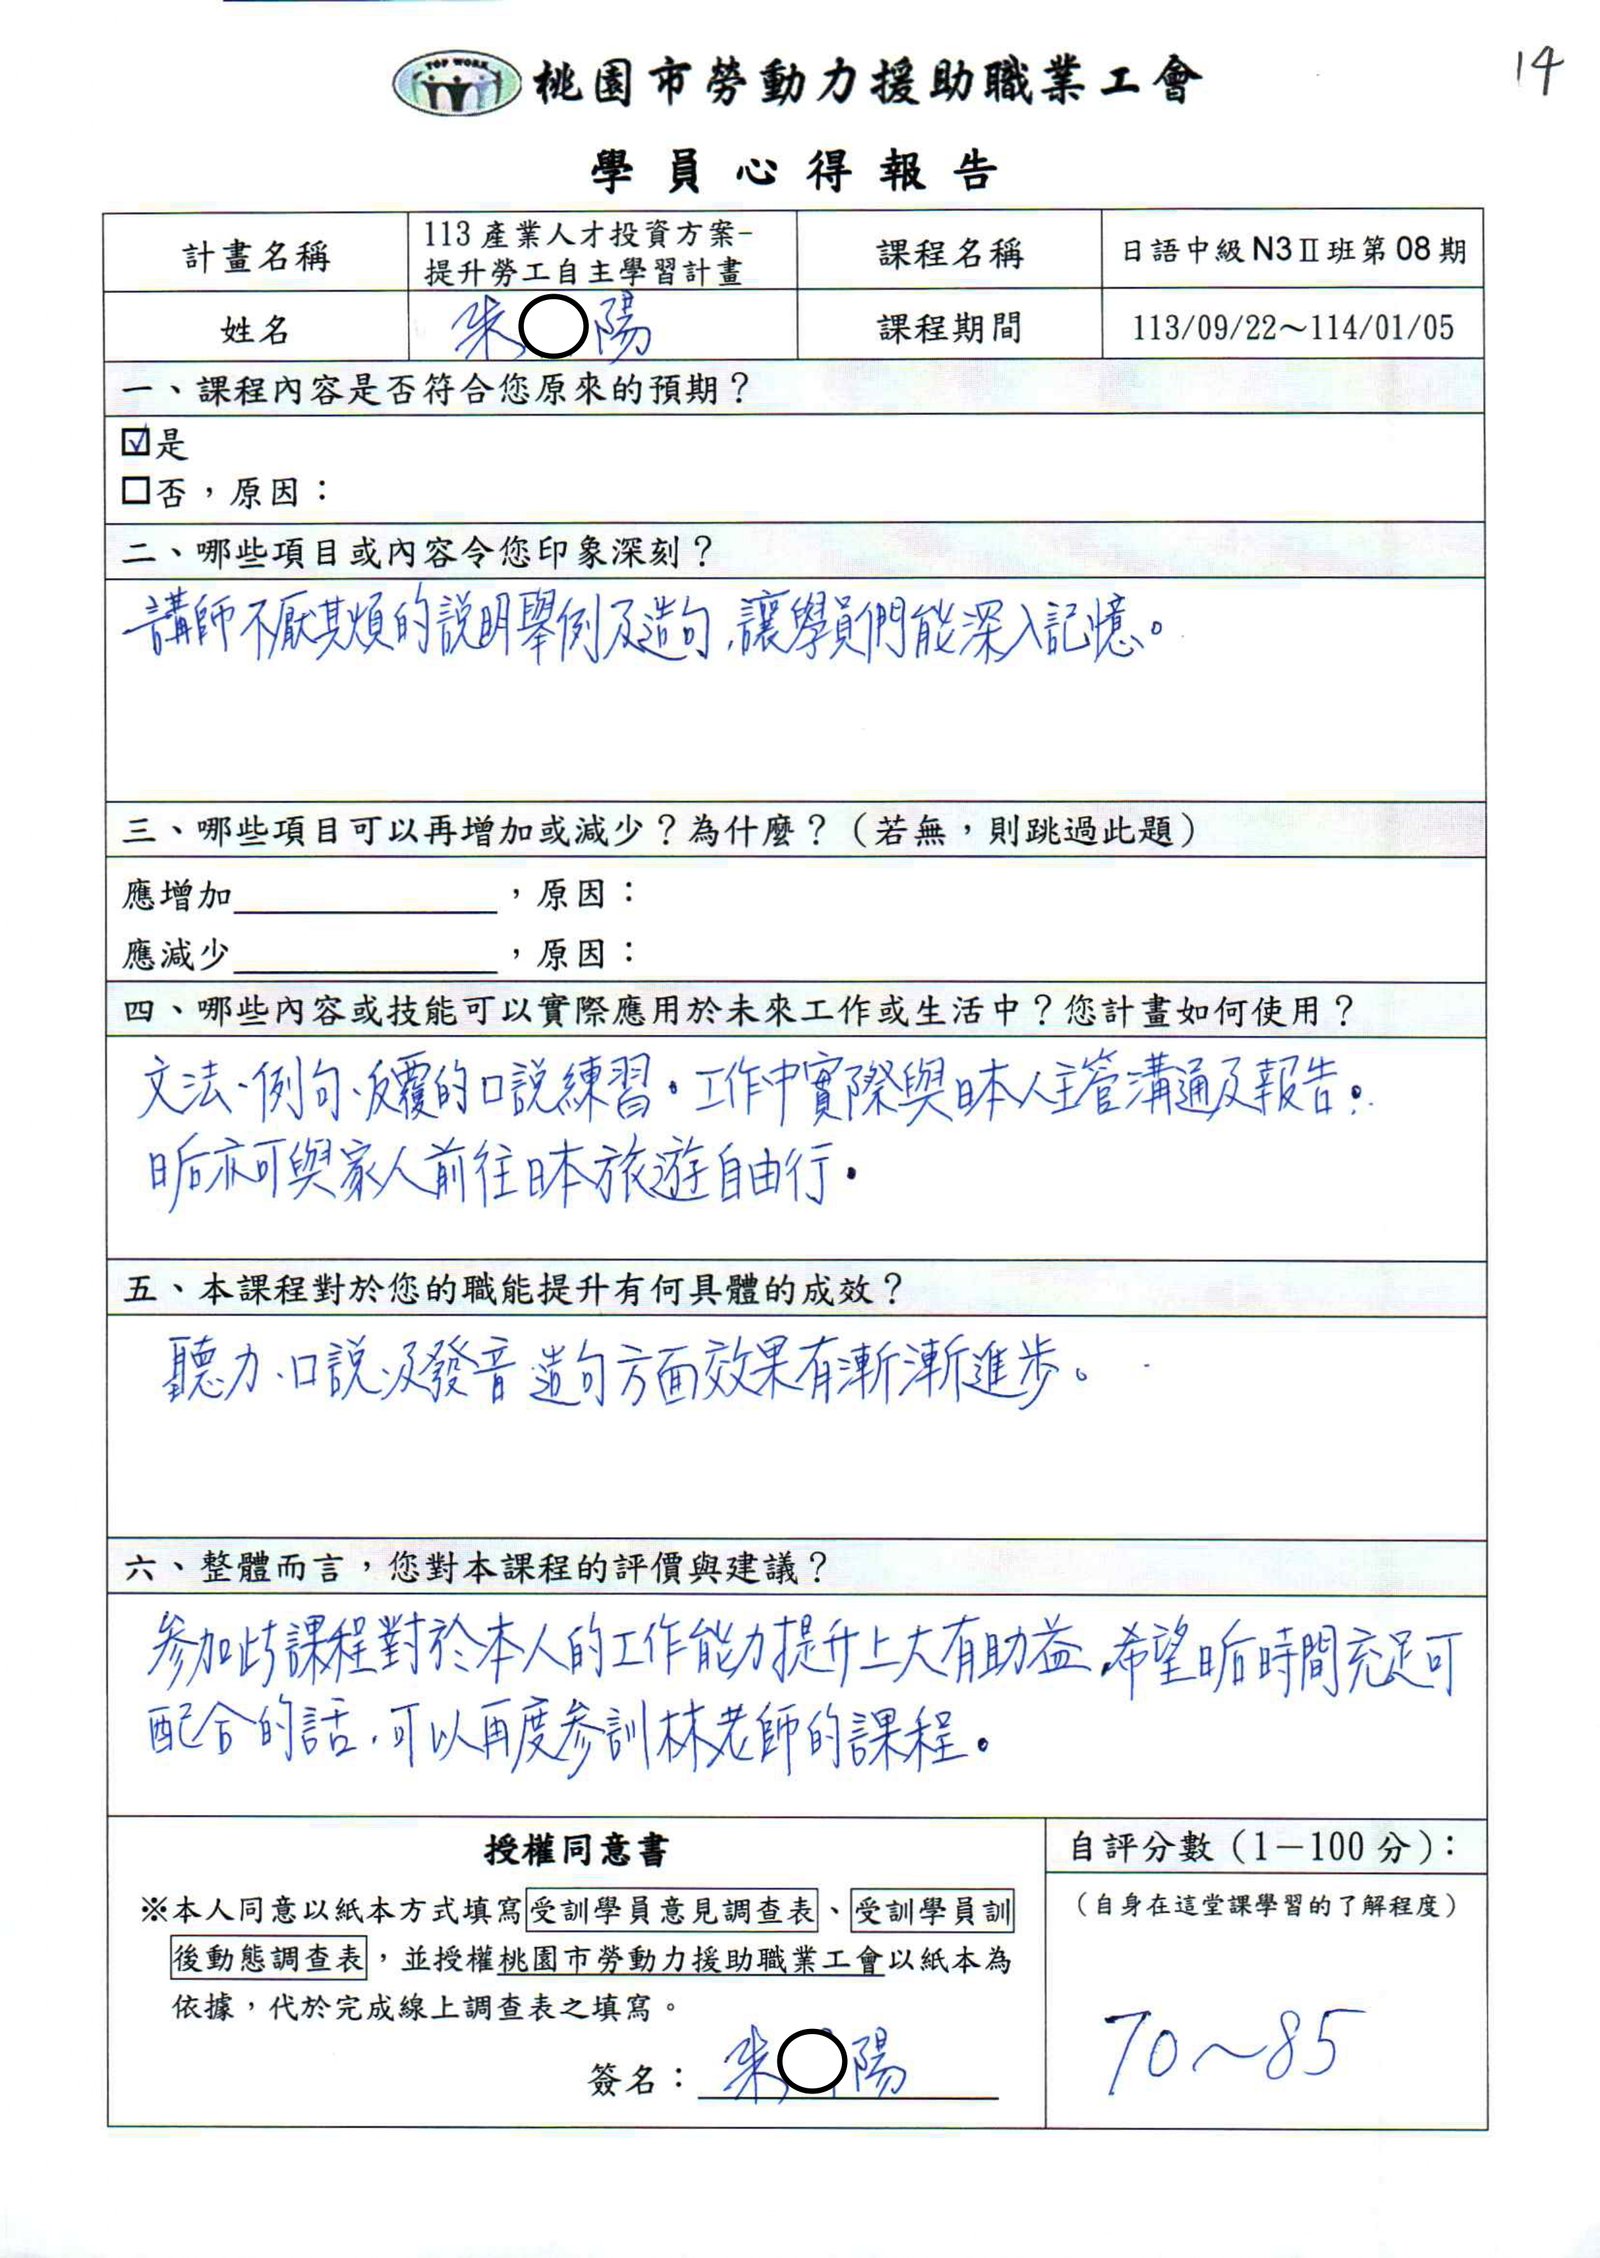 14
TOP WORK
桃園市勞動力援助職業工會
學員心得報告
計畫名稱
113產業人才投資方案-
提升勞工自主學習計畫
課程名稱
日語中級N3Ⅱ班第08期
姓名
朱 陽
課程期間
113/09/22～114/01/05
一、課程內容是否符合您原來的預期？
☑是
☐否，原因：
二、哪些項目或內容令您印象深刻？
講師不厭其煩的說明舉例及造句，讓學員們能深入記憶。
三、哪些項目可以再增加或減少？為什麼？（若無，則跳過此題）
應增加＿＿＿＿＿＿＿，原因：
應減少＿＿＿＿＿＿＿，原因：
四、哪些內容或技能可以實際應用於未來工作或生活中？您計畫如何使用？
文法、例句、反覆的口說練習。工作中實際與日本人主管溝通及報告。
日后亦可與家人前往日本旅遊自由行。
五、本課程對於您的職能提升有何具體的成效？
聽力、口說、及發音 造句方面效果有漸漸進步。
六、整體而言，您對本課程的評價與建議？
參加此課程對於本人的工作能力提升上大有助益，希望日后時間充足可
配合的話，可以再度參訓林老師的課程。
授權同意書
※本人同意以紙本方式填寫受訓學員意見調查表、受訓學員訓
後動態調查表，並授權桃園市勞動力援助職業工會以紙本為
依據，代於完成線上調查表之填寫。
簽名：朱 陽
自評分數（1－100分）：
（自身在這堂課學習的了解程度）
70～85